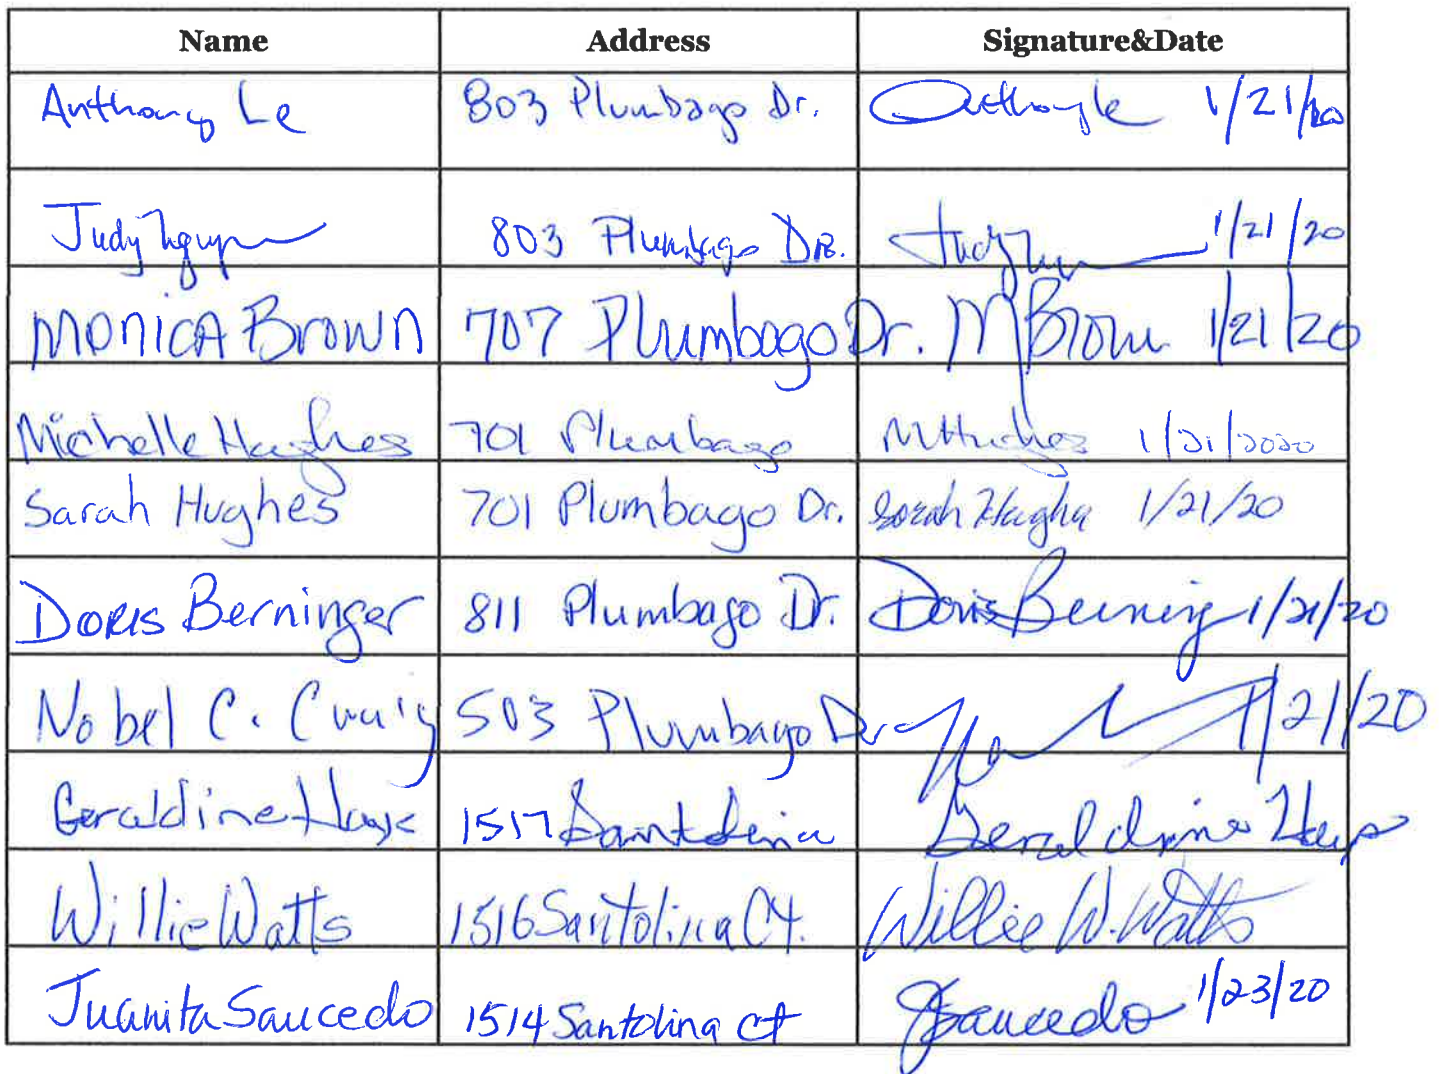 Name Address Signature&Date
Anthony Le 803 Plumbago Dr. Anthony Le 1/21/20
Judy Nguyen 803 Plumbago DR. Judy 1/21/20
MONICA BROWN 707 Plumbago Dr. M Brown 1/21/20
Michelle Hughes 701 Plumbago M Hughes 1/21/2020
Sarah Hughes 701 Plumbago Dr. Sarah Hughes 1/21/20
Doris Berninger 811 Plumbago Dr. Doris Berninger 1/21/20
Nobel C. Craig 503 Plumbago Dr 1/21/20
Geraldine Hays 1517 Santolina Geraldine Hays
Willie Watts 1516 Santolina Ct. Willie W. Watts
Juanita Saucedo 1514 Santolina ct JSaucedo 1/23/20